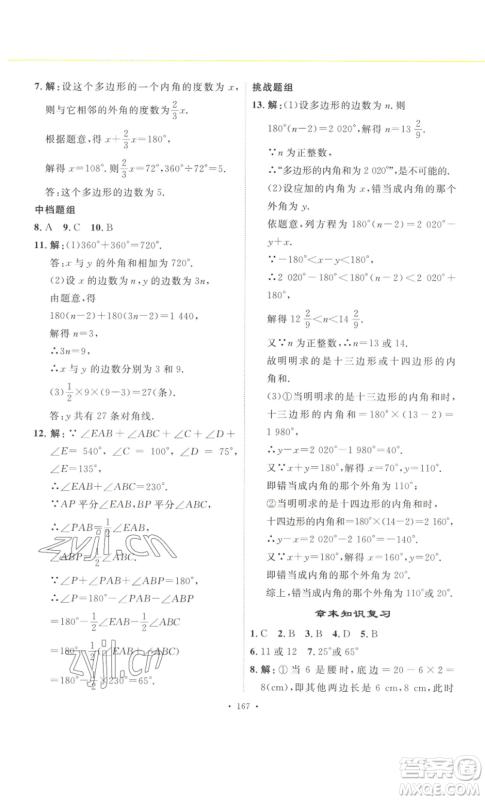 7. 解：设这个多边形的一个内角的度数为 x，
则与它相邻的外角的度数为 2/3 x.
根据题意，得 x＋2/3 x＝180°，
解得 x＝108°. 2/3 x＝72°，360°÷72°＝5.
答：这个多边形的边数为 5.
中档题组
8. A　9. C　10. B
11. 解：(1)360°＋360°＝720°.
答：x 与 y 的外角和相加是 720°.
(2)设 x 的边数为 n，y 的边数为 3n，
由题意，得
180(n－2)＋180(3n－2)＝1 440，
解得 n＝3，
∴3n＝9.
∴x 与 y 的边数分别为 3 和 9.
(3) 1/2×9×(9－3)＝27(条).
答：y 共有 27 条对角线.
12. 解：∵∠EAB＋∠ABC＋∠C＋∠D＋
∠E＝540°，∠C＝100°，∠D＝75°，
∠E＝135°，
∴∠EAB＋∠ABC＝230°.
∵AP 平分∠EAB，BP 平分∠ABC，
∴∠PAB＝1/2∠EAB，
∠ABP＝1/2∠ABC，
∵∠P＋∠PAB＋∠ABP＝180°，
∴∠P＝180°－∠PAB－∠ABP
＝180°－1/2∠EAB－1/2∠ABC
＝180°－1/2(∠EAB＋∠ABC)
＝180°－1/2×230°＝65°.
挑战题组
13. 解：(1)设多边形的边数为 n. 则
180°(n－2)＝2 020°，解得 n＝13 2/9.
∵n 为正整数，
∴“多边形的内角和为 2 020°”，是不可能的.
(2)设应加的内角为 x，错当成内角的外角为 y.
依题意，列方程为 180°(n－2)＝2 020°－y＋x，
∵－180°＜x－y＜180°，
∴2 020°－180°＜180°(n－2)＜2 020°＋180°，
解得 12 2/9＜n＜14 2/9.
又∵n 为正整数，
∴n＝13 或 n＝14.
故明明求的是十三边形或十四边形的内角和.
(3)①当明明求的是十三边形的内角和时，
十三边形内角和为 180°×(13－2)＝1 980°.
∴y－x＝2 020°－1 980°＝40°.
又∵x＋y＝180°，解得 x＝70°，y＝110°.
即错当成内角的那个外角为 110°；
②当明明求的是十四边形的内角和时，
十四边形内角和为 180°×(14－2)＝2 160°.
∴x－y＝2 160°－2 020°＝140°.
又∵x＋y＝180°，解得 x＝160°，y＝20°.
即错当成内角的那个外角为 20°.
综上，错当成内角的那个外角为 110°或 20°.
章末知识复习
1. C　2. B　3. B　4. D　5. B
6. 11 或 12　7. 25°或 65°
8. 解：①当 6 是腰时，底边＝20－6×2＝
8(cm)，即其他两边长是 6 cm，8 cm，
• 167 •
zyji.cn
zyji.cn
答案圈
MXQE.COM